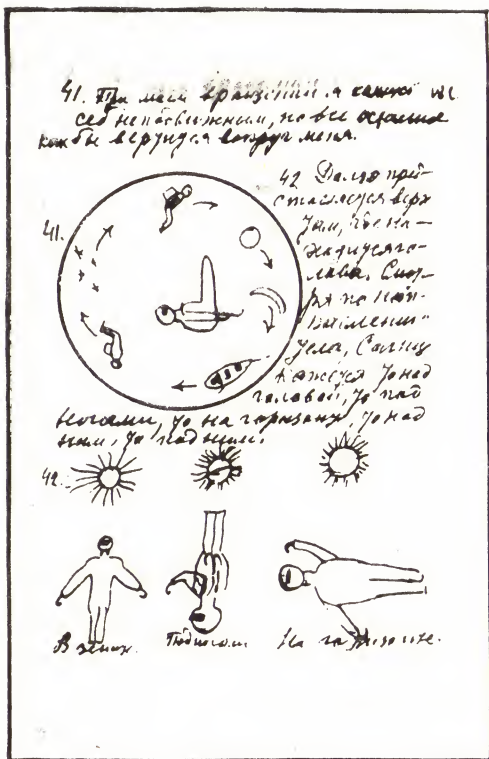 41. При моем вращении я кажусь
себе неподвижным, но все остальное
как бы вертится вокруг меня.
42
верх
там, где на-
ходится го-
лова. Смот-
ря по нап-
равлению
тела, Солнце
кажется то над
головой, то под
ногами, то на горизонте, то над
ним, то под ним.
41.
42.
В зените.
Под ногами.
На горизонте.